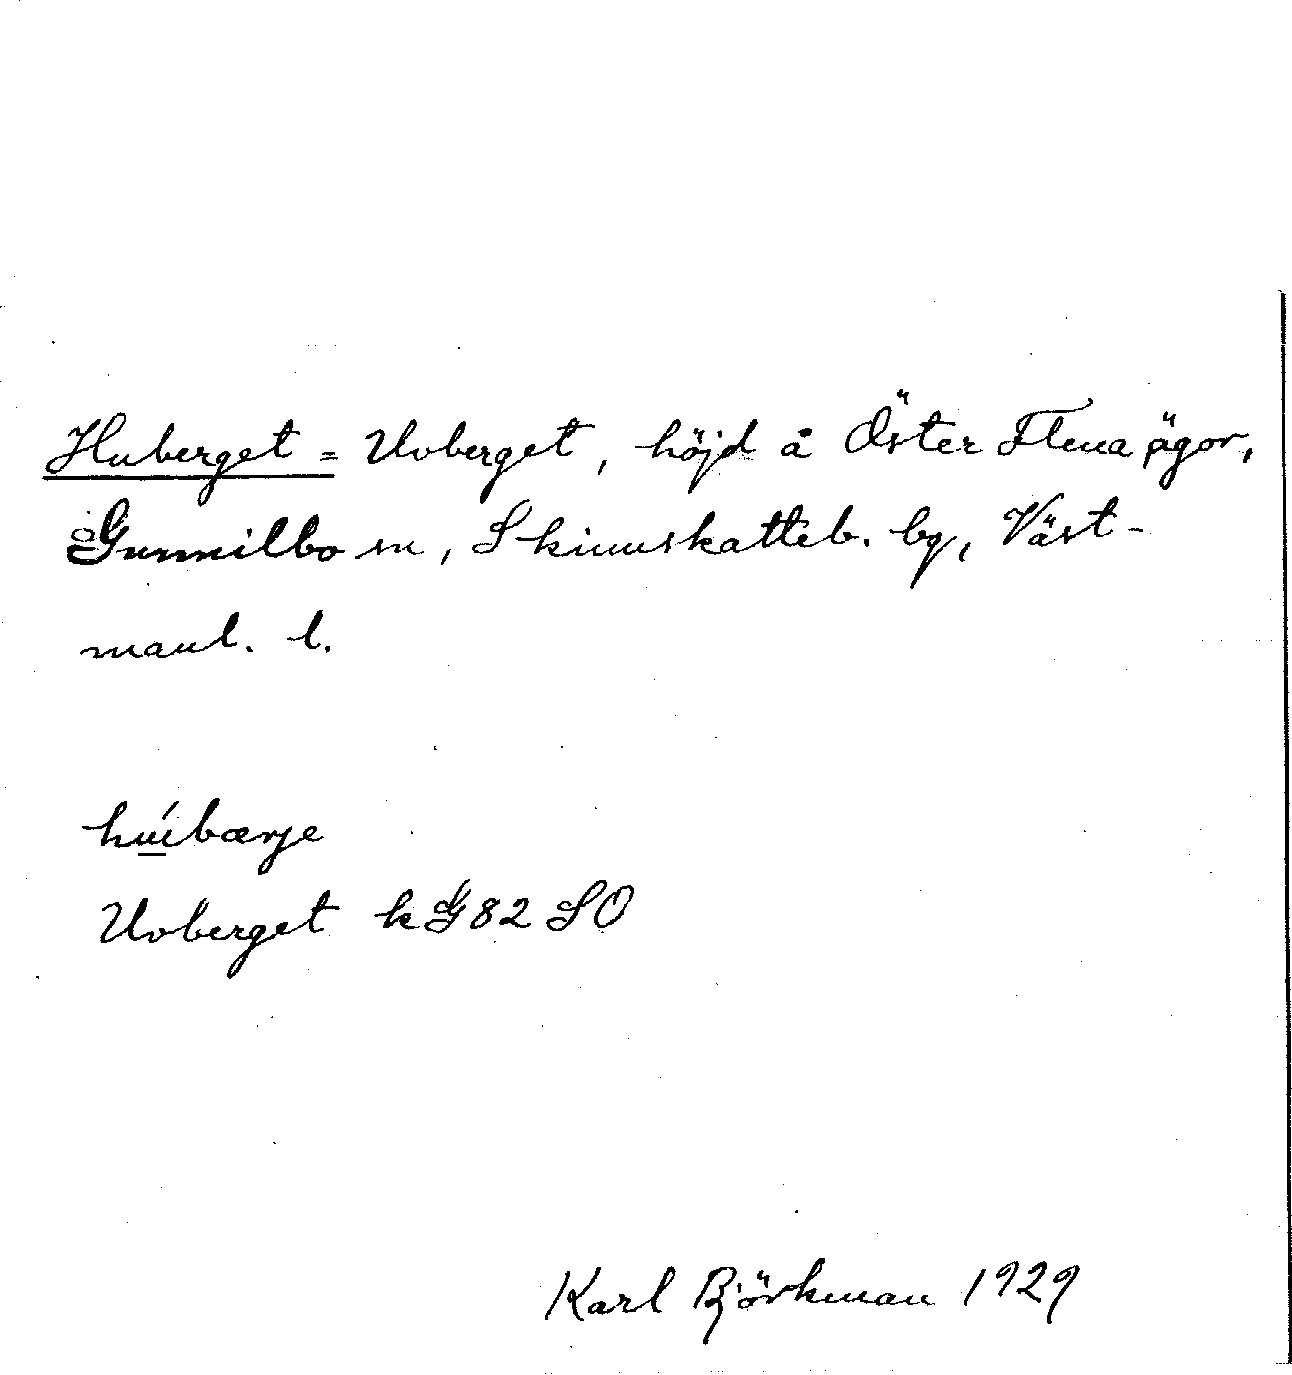 Huberget = Uvberget, höjd å Öster Flena ägor,
Gunnilbo sn, Skinnskatteb. bg, Väst-
manl. l.
hú̲bærje
Uvberget kG 82 SO
Karl Björkman 1929